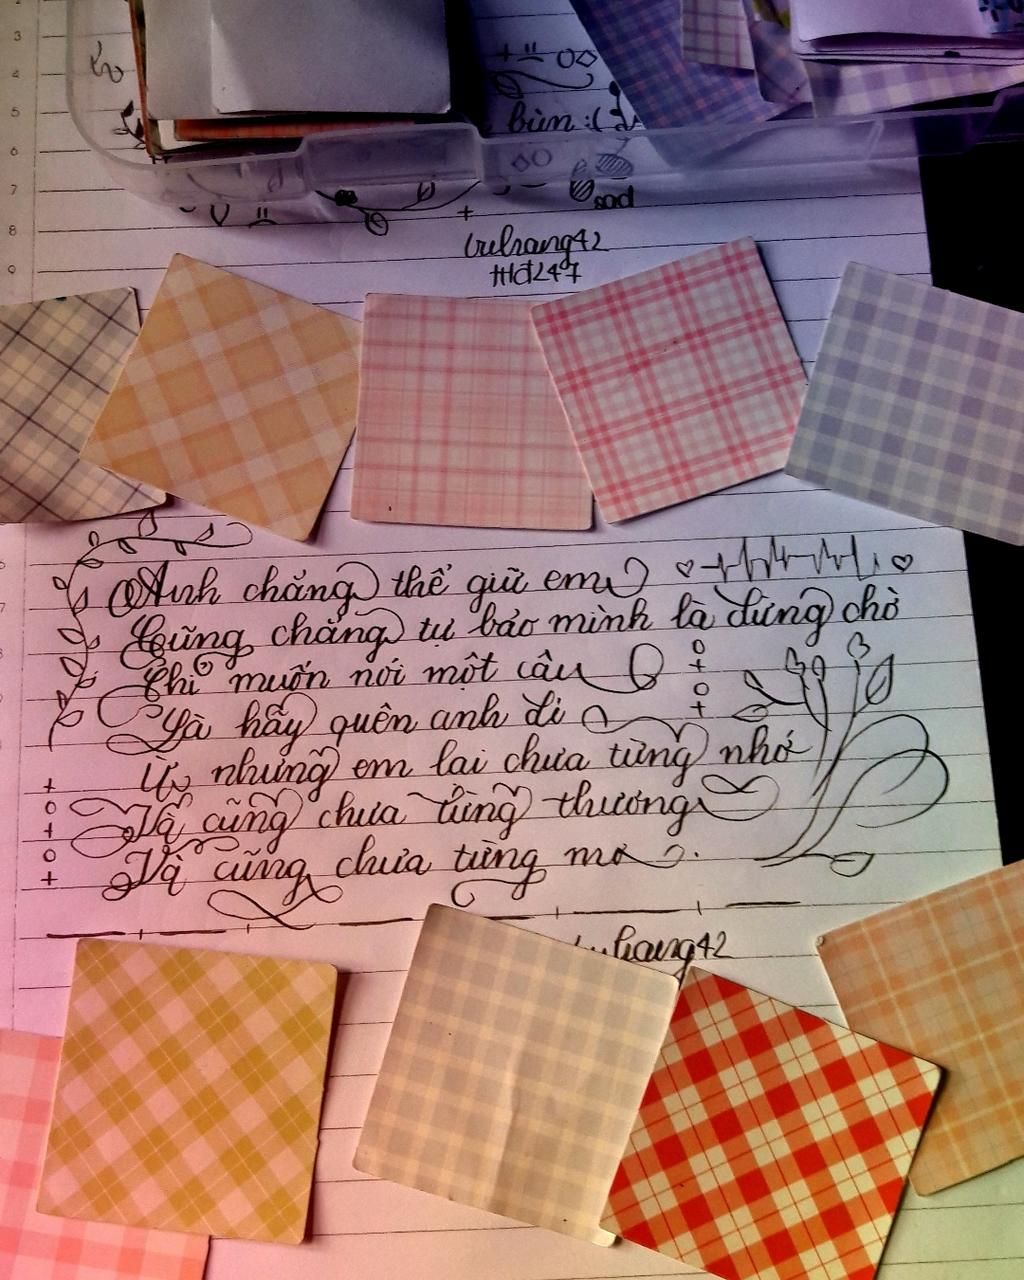 buồn :(
sad
tuhang42
thd247
Anh chẳng thể giữ em
Cũng chẳng tự bảo mình là dừng chờ
Chỉ muốn nói một câu
Là hãy quên anh đi
Ừ, nhưng em lại chưa từng nhớ
Và cũng chưa từng thương
Và cũng chưa từng mơ.
tuhang42